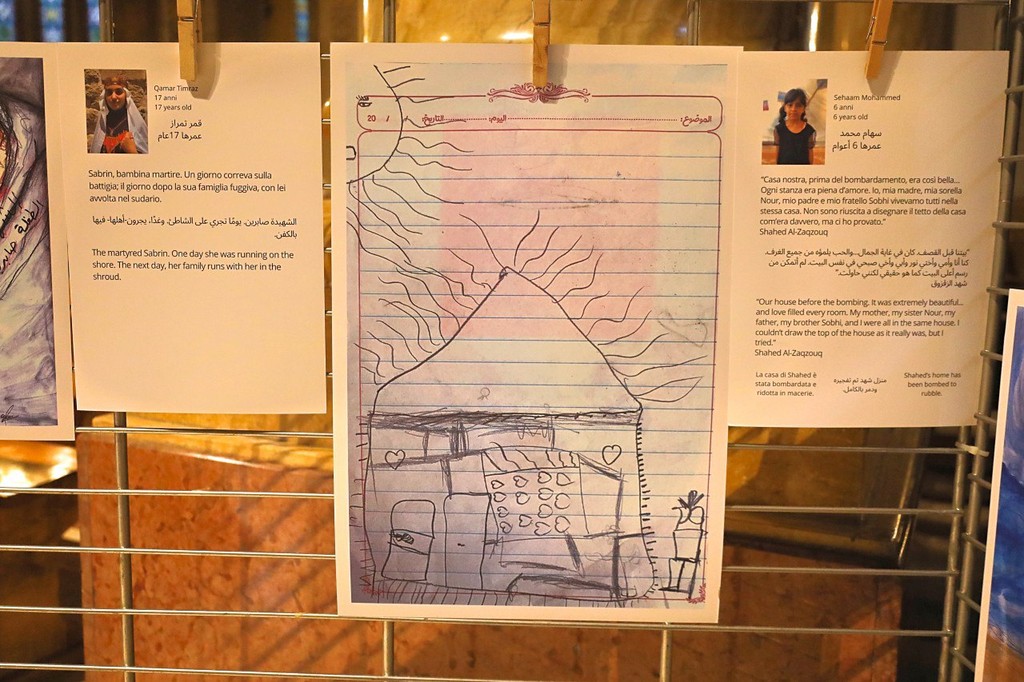 Qamar Timraz
17 anni
17 years old
قمر تمراز
عمرها 17عام
Sabrin, bambina martire. Un giorno correva sulla
battigia; il giorno dopo la sua famiglia fuggiva, con lei
avvolta nel sudario.
الشهيدة صابرين. يومًا تجري على الشاطئ. وغدًا، يجرون-أهلها- فيها
بالكفن.
The martyred Sabrin. One day she was running on the
shore. The next day, her family runs with her in the
shroud.
الموضوع: اليوم: التاريخ: / 20
Sehaam Mohammed
6 anni
6 years old
سهام محمد
عمرها 6 أعوام
"Casa nostra, prima del bombardamento, era così bella...
Ogni stanza era piena d'amore. Io, mia madre, mia sorella
Nour, mio padre e mio fratello Sobhi vivevamo tutti nella
stessa casa. Non sono riuscita a disegnare il tetto della casa
com'era davvero, ma ci ho provato."
Shahed Al-Zaqzouq
"بيتنا قبل القصف. كان في غاية الجمال...والحب يلمؤه من جميع الغرف.
كنا أنا وأمي وأختي نور وأبي وأخي صبحي في نفس البيت. لم أتمكن من
رسم أعلى البيت كما هو حقيقي لكنني حاولت."
شهد الزقزوق
"Our house before the bombing. It was extremely beautiful...
and love filled every room. My mother, my sister Nour, my
father, my brother Sobhi, and I were all in the same house. I
couldn't draw the top of the house as it really was, but I
tried."
Shahed Al-Zaqzouq
La casa di Shahed è
stata bombardata e
ridotta in macerie.
منزل شهد تم تفجيره
ودمر بالكامل.
Shahed's home has
been bombed to
rubble.